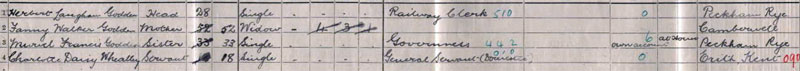 1 Herbert Langham Godden Head 28 Single Railway Clerk 510 0 Peckham Rye
2 Fanny Walker Godden Mother 52 52 Widow Camberwell
3 Muriel Francis Godden Sister 33 33 Single Governess 442 6 at Home Peckham Rye
4 Charlotte Daisy Wheatley Servant 18 Single General Servant (Domestic) 0 Erith Kent 091